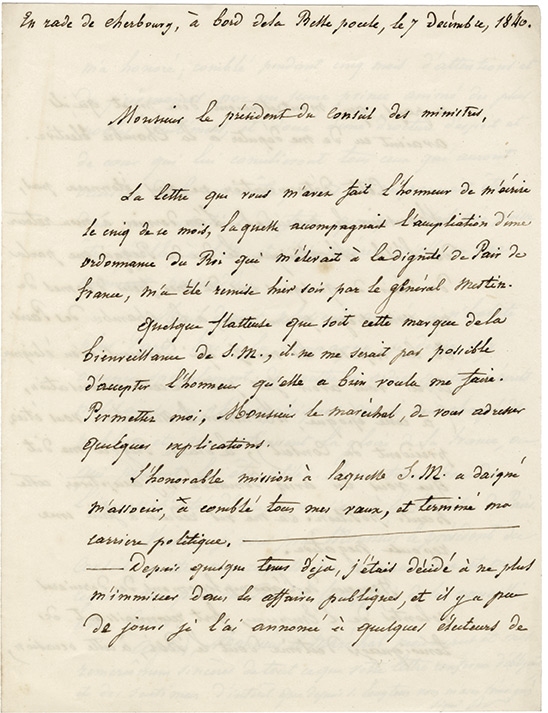 En rade de cherbourg, à bord dela Belle poule, le 7 décembre, 1840.
Monsieur le président du Conseil des ministres,
La lettre que vous m'avez fait l'honneur de m'écrire
le cinq de ce mois, laquelle accompagnait l'ampliation d'une
ordonnance du Roi qui m'élevait à la dignité de Pair de
france, m'a été remise hier soir par le général
Quelque flatteuse que soit cette marque dela
bienveillance de S.M., il ne me serait pas possible
d'accepter l'honneur qu'elle a bien voulu me faire.
Permettez moi, Monsieur le maréchal, de vous adresser
quelques explications.
L'honorable mission à laquelle S.M. a daigné
m'associer, à comblé tous mes vœux, et terminé ma
carriere politique.
Depuis quelque tems déjà, j'étais décidé à ne plus
m'immiscer dans les affaires publiques, et il y a peu
de jours je l'ai annoncé à quelques électeurs de